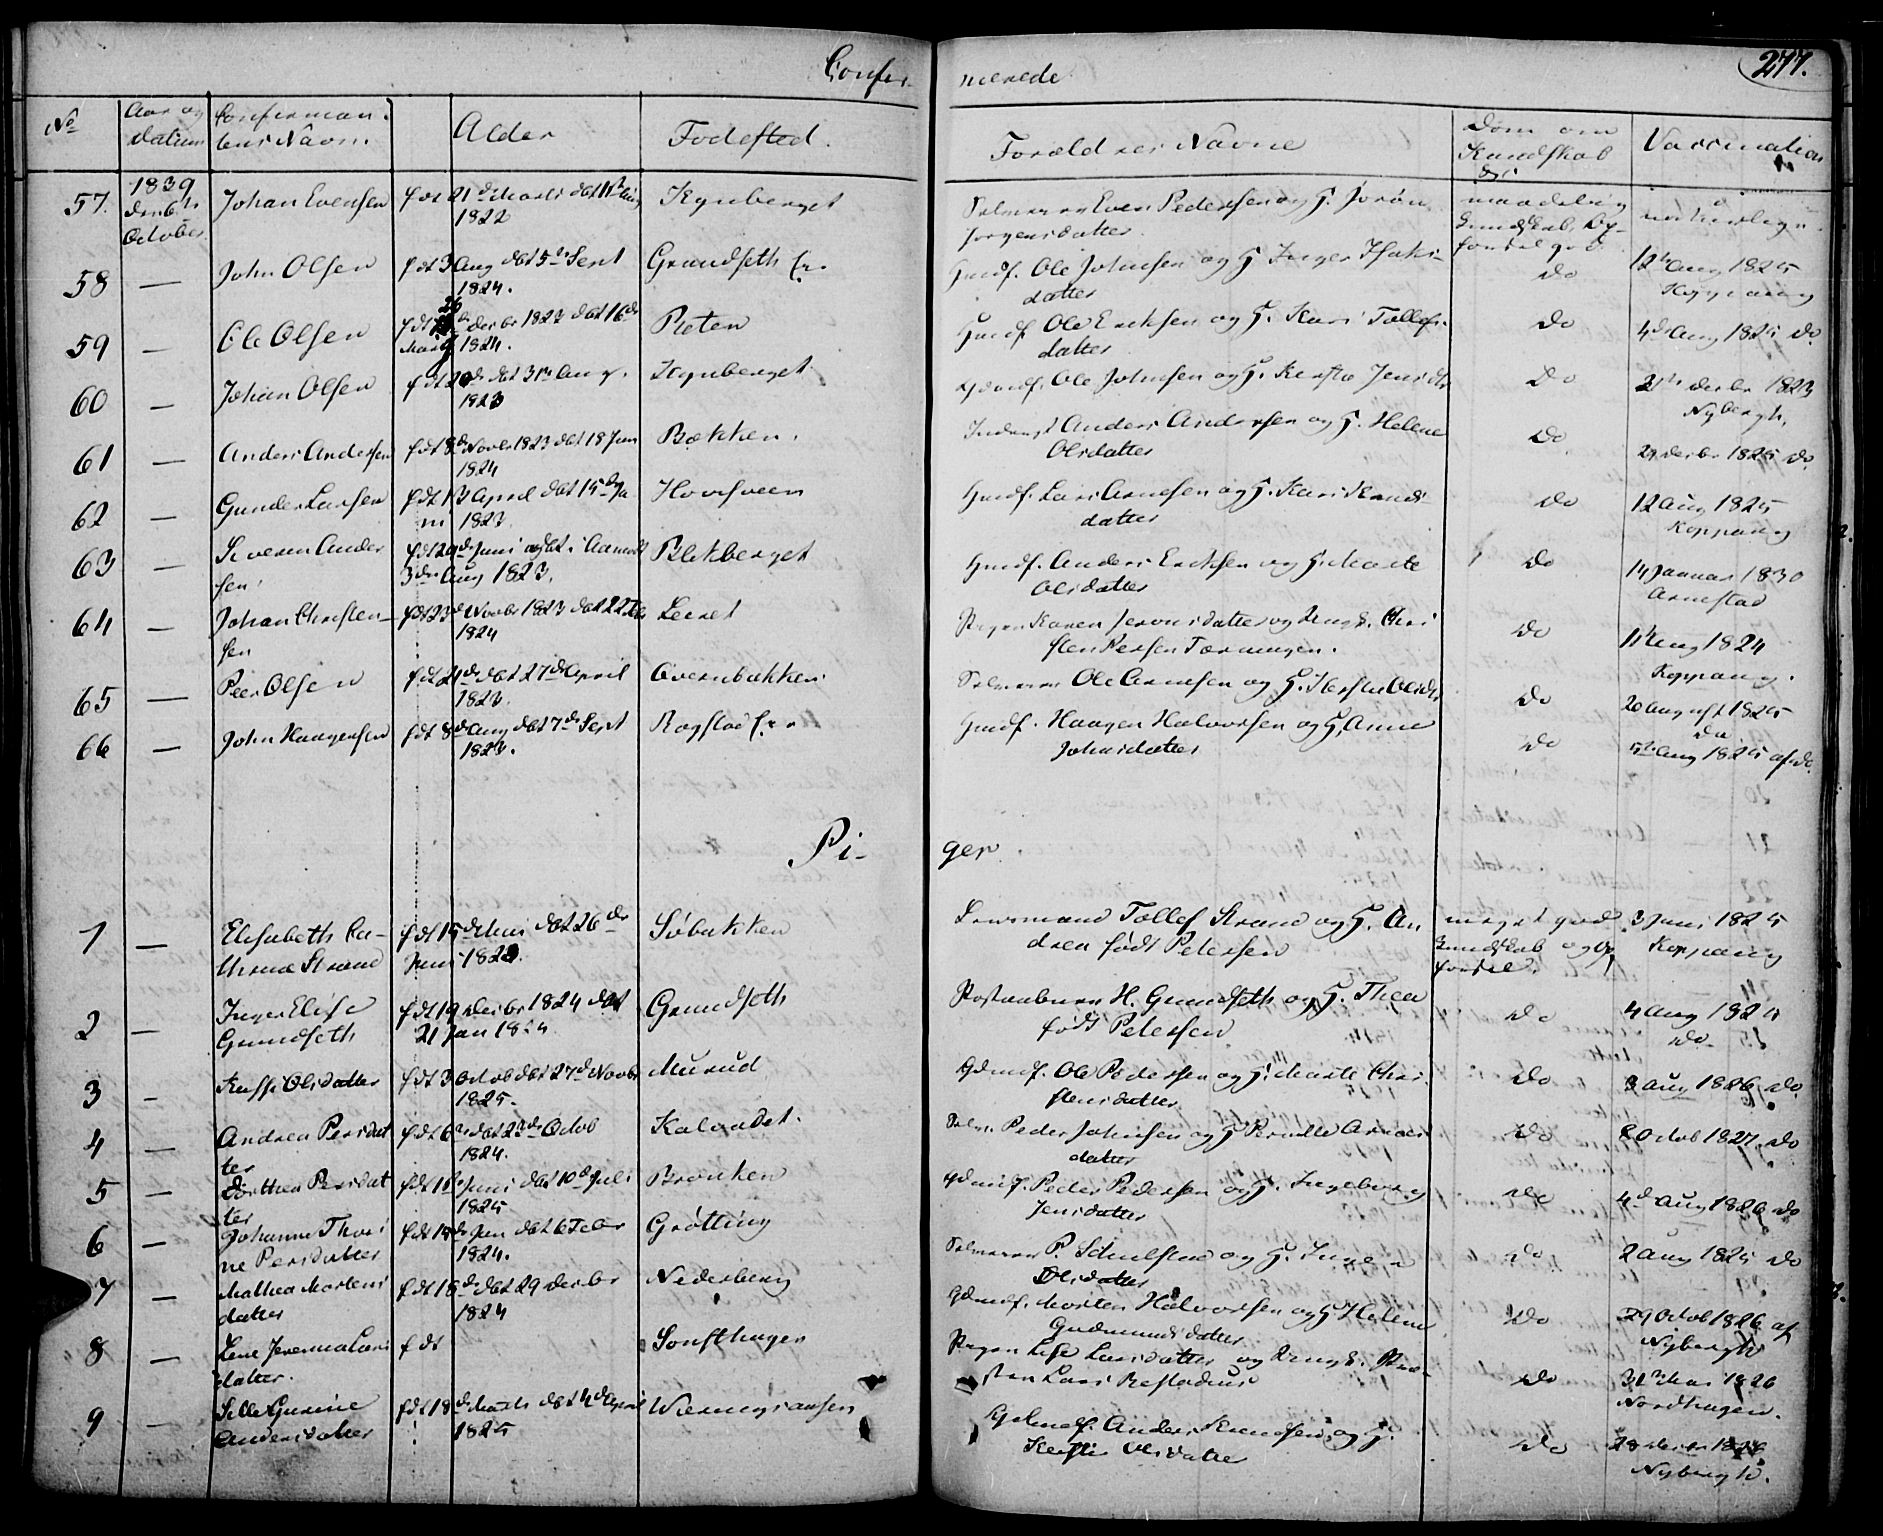 Confir-
merede
277.
No
Aar og
datum
Confirman-
tens Navn.
Alder
Fødested.
Forældres Navne
Dom om
Kundskab
Vaccination
57. 1839 den 6te October Johan Evensen fdt 21de Marts døbt
1822
Kynberget
Selveier Even Pedersen og H. Jørøn
Jørgensdatter
maadelig
Kundskab, Op-
førsel god
naturlige
58 — John Olsen fdt 3 Aug døbt 5te Sept
1824.
Grundseth Er.
Huusf. Ole Johnsen og H. Inger
datter
Do
12te Aug 1825
Koppang
59 — Ole Olsen fdt 26 Decbr 1823 døbt 16de
Marts 1824.
Reten
Huusf Ole Ericksen og H. Kari Tollefs-
datter
Do
4de Aug 1825 Do
60 — Johan Olsen fdt 20de døbt 31te Aug.
1823
Kynberget
Gdmd. Ole Johnsen og H. Kerste Jensdtr
Do
Decbr 1823
Nybergh,
61 — Anders Andersen fdt 8de Novbr 1823 døbt 18 Jan
1824
Bækken.
Inderst Anders Andersen og H. Helene
Olsdatter
Do
29 Decbr 1825 Do
62 — Gunder Larsen fdt 13 April døbt 15de Ju-
ni 1823.
Hovsveen
Huusf. Lars Arnesen og H. Kari Knuds-
datter
Do
12 Aug 1825
Koppang
63 — Severen Ander
sen.
fdt 29de Juni døbt i Aamodt
3die Aug 1823.
Blekberget
Huusf. Anders Ericksen og H. Marte
Olsdatter
Do
14 Januar 1830
Arnestad
64 — Johan Christen-
sen
fdt 23de Novbr 1823 døbt 22 Feb
1824
Leeret
Pigen Karen Jensdatter og Ungk. Chri
sten Persen Tærningen.
Do
11te Aug 1824
Koppang.
65 — Peer Olsen fdt 21de døbt 27de April
1823.
Overnbakken
Selveier Ole Arnesen og H. Kersten Olsdtr
Do
20 August 1825
Do
66 — John Haagensen fdt 8de Aug døbt 7de Sept
1823.
Rogstad Er.
Huusf. Haagen Halvorsen og H. Anne
Johnsdatter
Do
5te Aug 1825 af Do.
Pi-
ger
1 — Elisabeth Ca-
thrine Strand
fdt 15de Mai døbt 26de
Juni 1823.
Søbakken
Lensmand Tollef Strand og H. An
drea født Petersen
meget god
Kundskab og Op
førsel.
3 Juni 1825
Koppang
2 — Inger Elise
Grundseth
fdt 19 Decbr 1824 døbt
21 Jan 1825
Grundseth
Postaabner H. Grundseth og H. Thea
født Petersen
Do
4 Aug 1825
Do
3 — Olsdatter fdt 3 Octob døbt 27de Novbr
1825.
Murud
Gdmd. Ole Pedersen og H. Marte Chri-
stensdatter
Do
3 Aug 1826 Do
4 — Andrea Persdat
ter
fdt 6te døbt 23de Octob
1824.
Kalvadet.
Selv. Peder Johnsen og H Pernille Arnes
datter
Do
8 Octob 1827. Do
5 — Dorthea Persdat
ter
fdt 11te Juni døbt 10de Juli
1825
Brænken
Gdmd. Peder Pedersen og H. Ingeborg
Jensdatter
Do
4de Aug 1826 Do
6 — Johanne Thori
ne Persdatter
fdt 14de Jan døbt 6 Febr
1824.
Grøtting
Selveier P. og H. Inge
Olsdatter
Do
2 Aug 1825 Do
7 — Mathea Martens
datter
fdt 18de døbt 29 Decbr
1824
Nederberg
Gdmd. Morten Halvorsen og H Helene
Gudmundsdatter
Do
29 Octob 1826 af
Nybergh
8 — Lene Jeremia Lars
datter.
fdt
Sonsthagen
Pigen Lise Larsdatter og Ungk.
Lars
Do
31te Mai 1826
Nordhagen.
9 — Sille Gurine
Andersdatter
fdt 18de Marts døbt 4de April
1825
Gdmd. Anders Knudsen og H.
Kersti Olsdatter
Do
28 Decbr 1826
Nybergh.